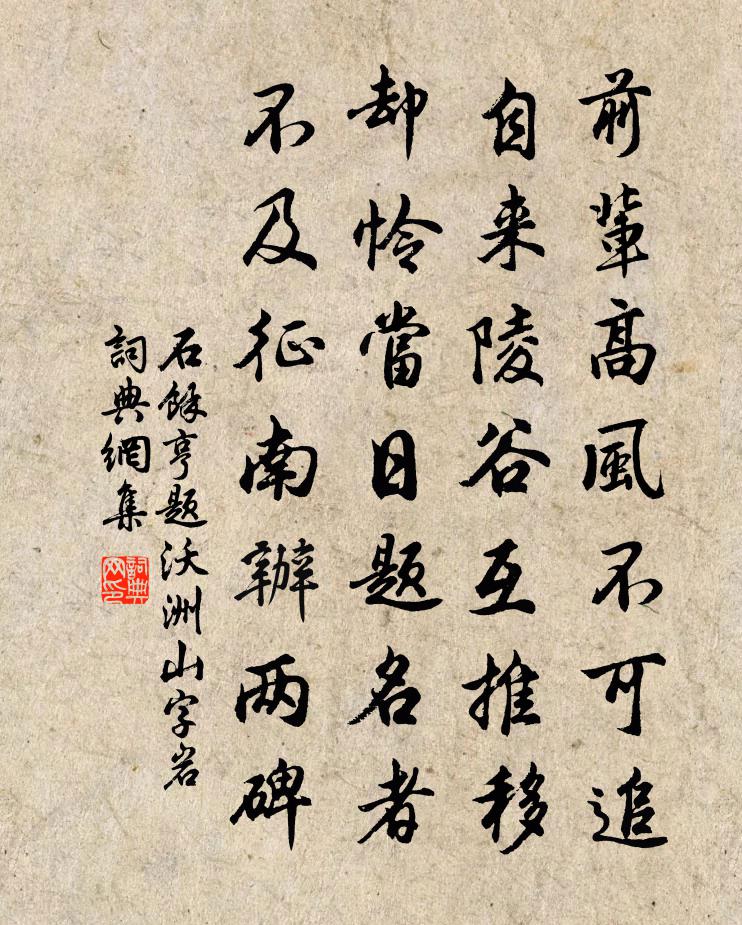 前輩高風不可追
自来陵谷互推移
却怜當日题名者
不及征南辦两碑
石餘亨题沃洲山字岩
詞典網集
詞典
网印